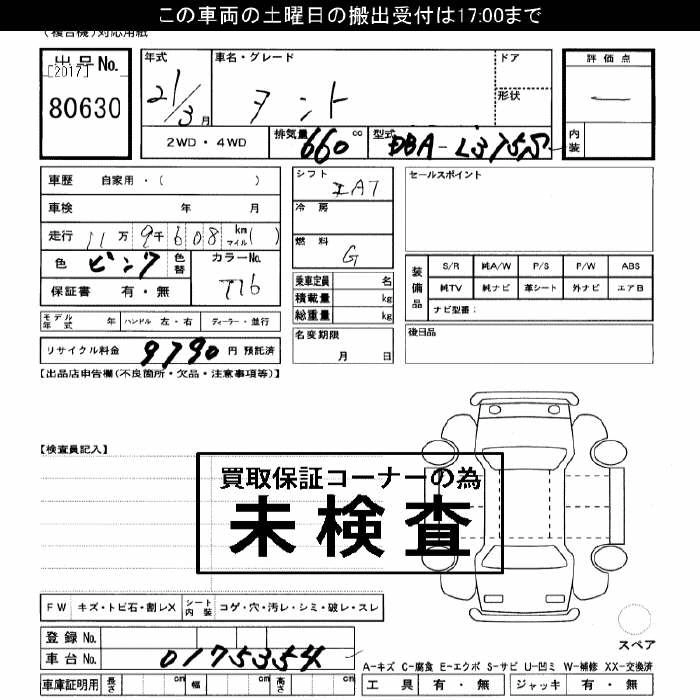 この車両の土曜日の搬出受付は17:00まで
(複合機)対応用紙
出品No. [2017] 80630
年式 21/3月
車名・グレード タント
ドア
形状
評価点 —
2WD・4WD
排気量 660 cc
型式 DBA-L375S
内装
車歴 自家用・( )
車検 年 月
走行 11万9千608 km マイル( )
色 ピンク 色替 カラーNo. T16
保証書 有・無
モデル年式 年 ハンドル 左・右 ディーラー・並行
リサイクル料金 9790 円 預託済
シフト IAT
冷房
燃料 G
乗車定員 名
積載量 kg
総重量 kg
名変期限 月 日
セールスポイント
装備品 S/R 純A/W P/S P/W ABS
純TV 純ナビ 革シート 外ナビ エアB
ナビ型番:
後日品
【出品店申告欄(不良箇所・欠品・注意事項等)】
【検査員記入】
買取保証コーナーの為
未検査
FW キズ・トビ石・割レX シート内装 コゲ・穴・汚レ・シミ・破レ・スレ
登録No.
車台No. 0175354
スペア
A-キズ C-腐食 E-エクボ S-サビ U-凹ミ W-補修 XX-交換済
車庫証明用 長さ cm 幅 cm 高さ cm
工具 有・無 ジャッキ 有・無